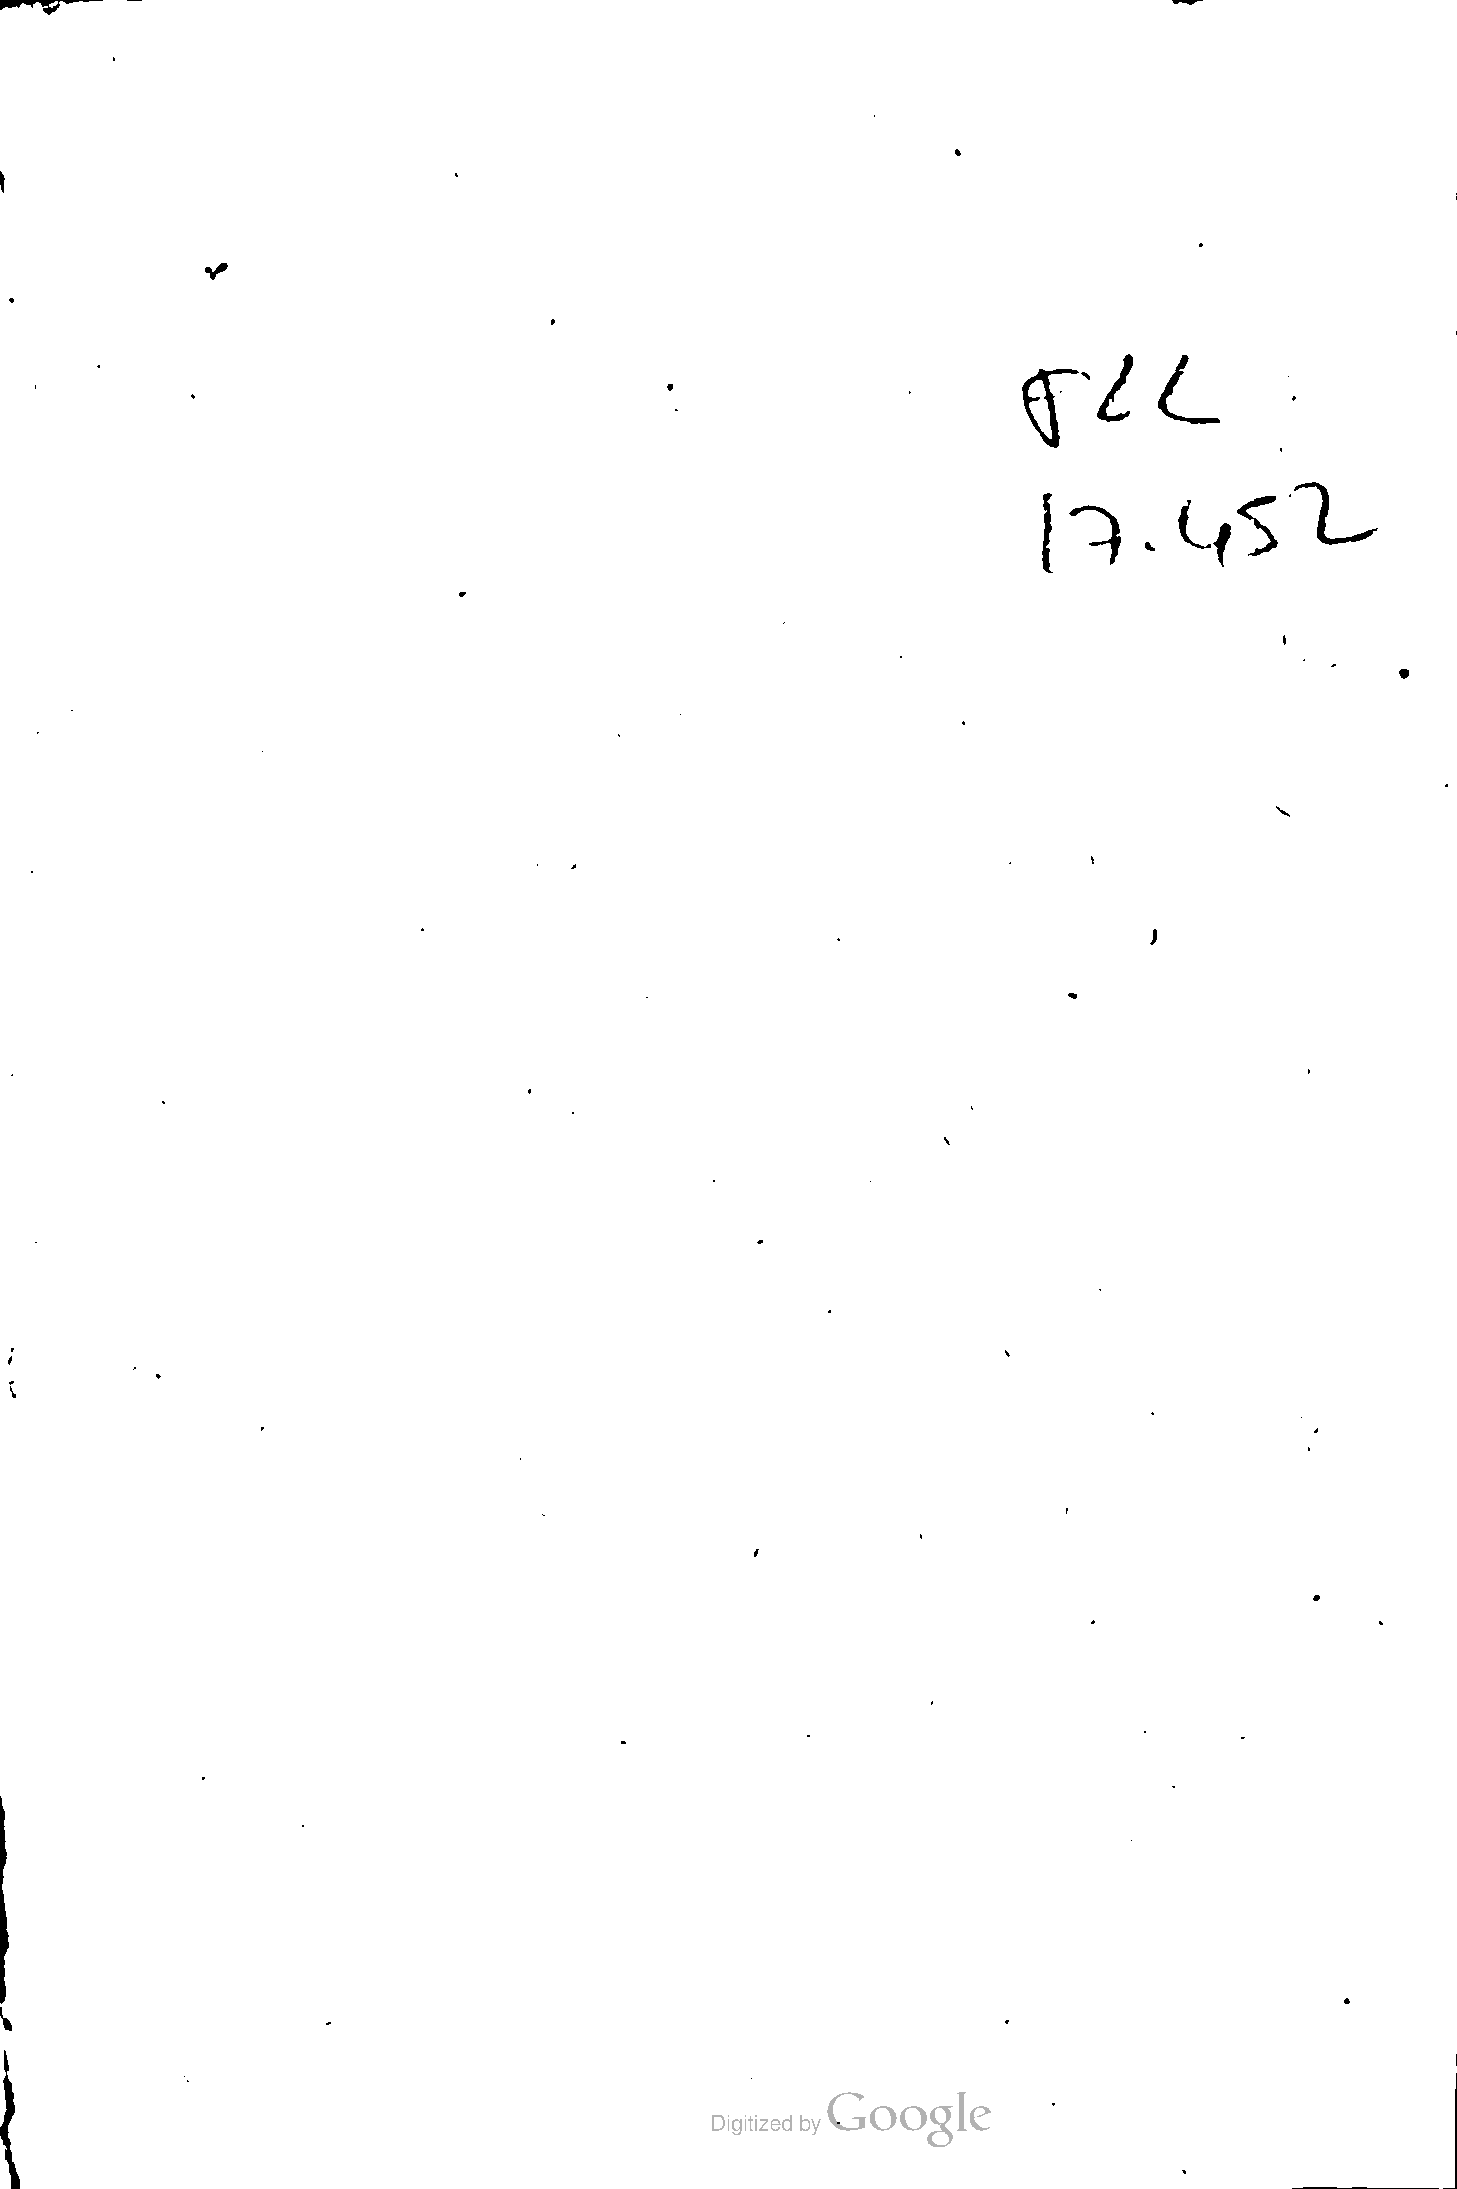 17.452
Digitized by Google